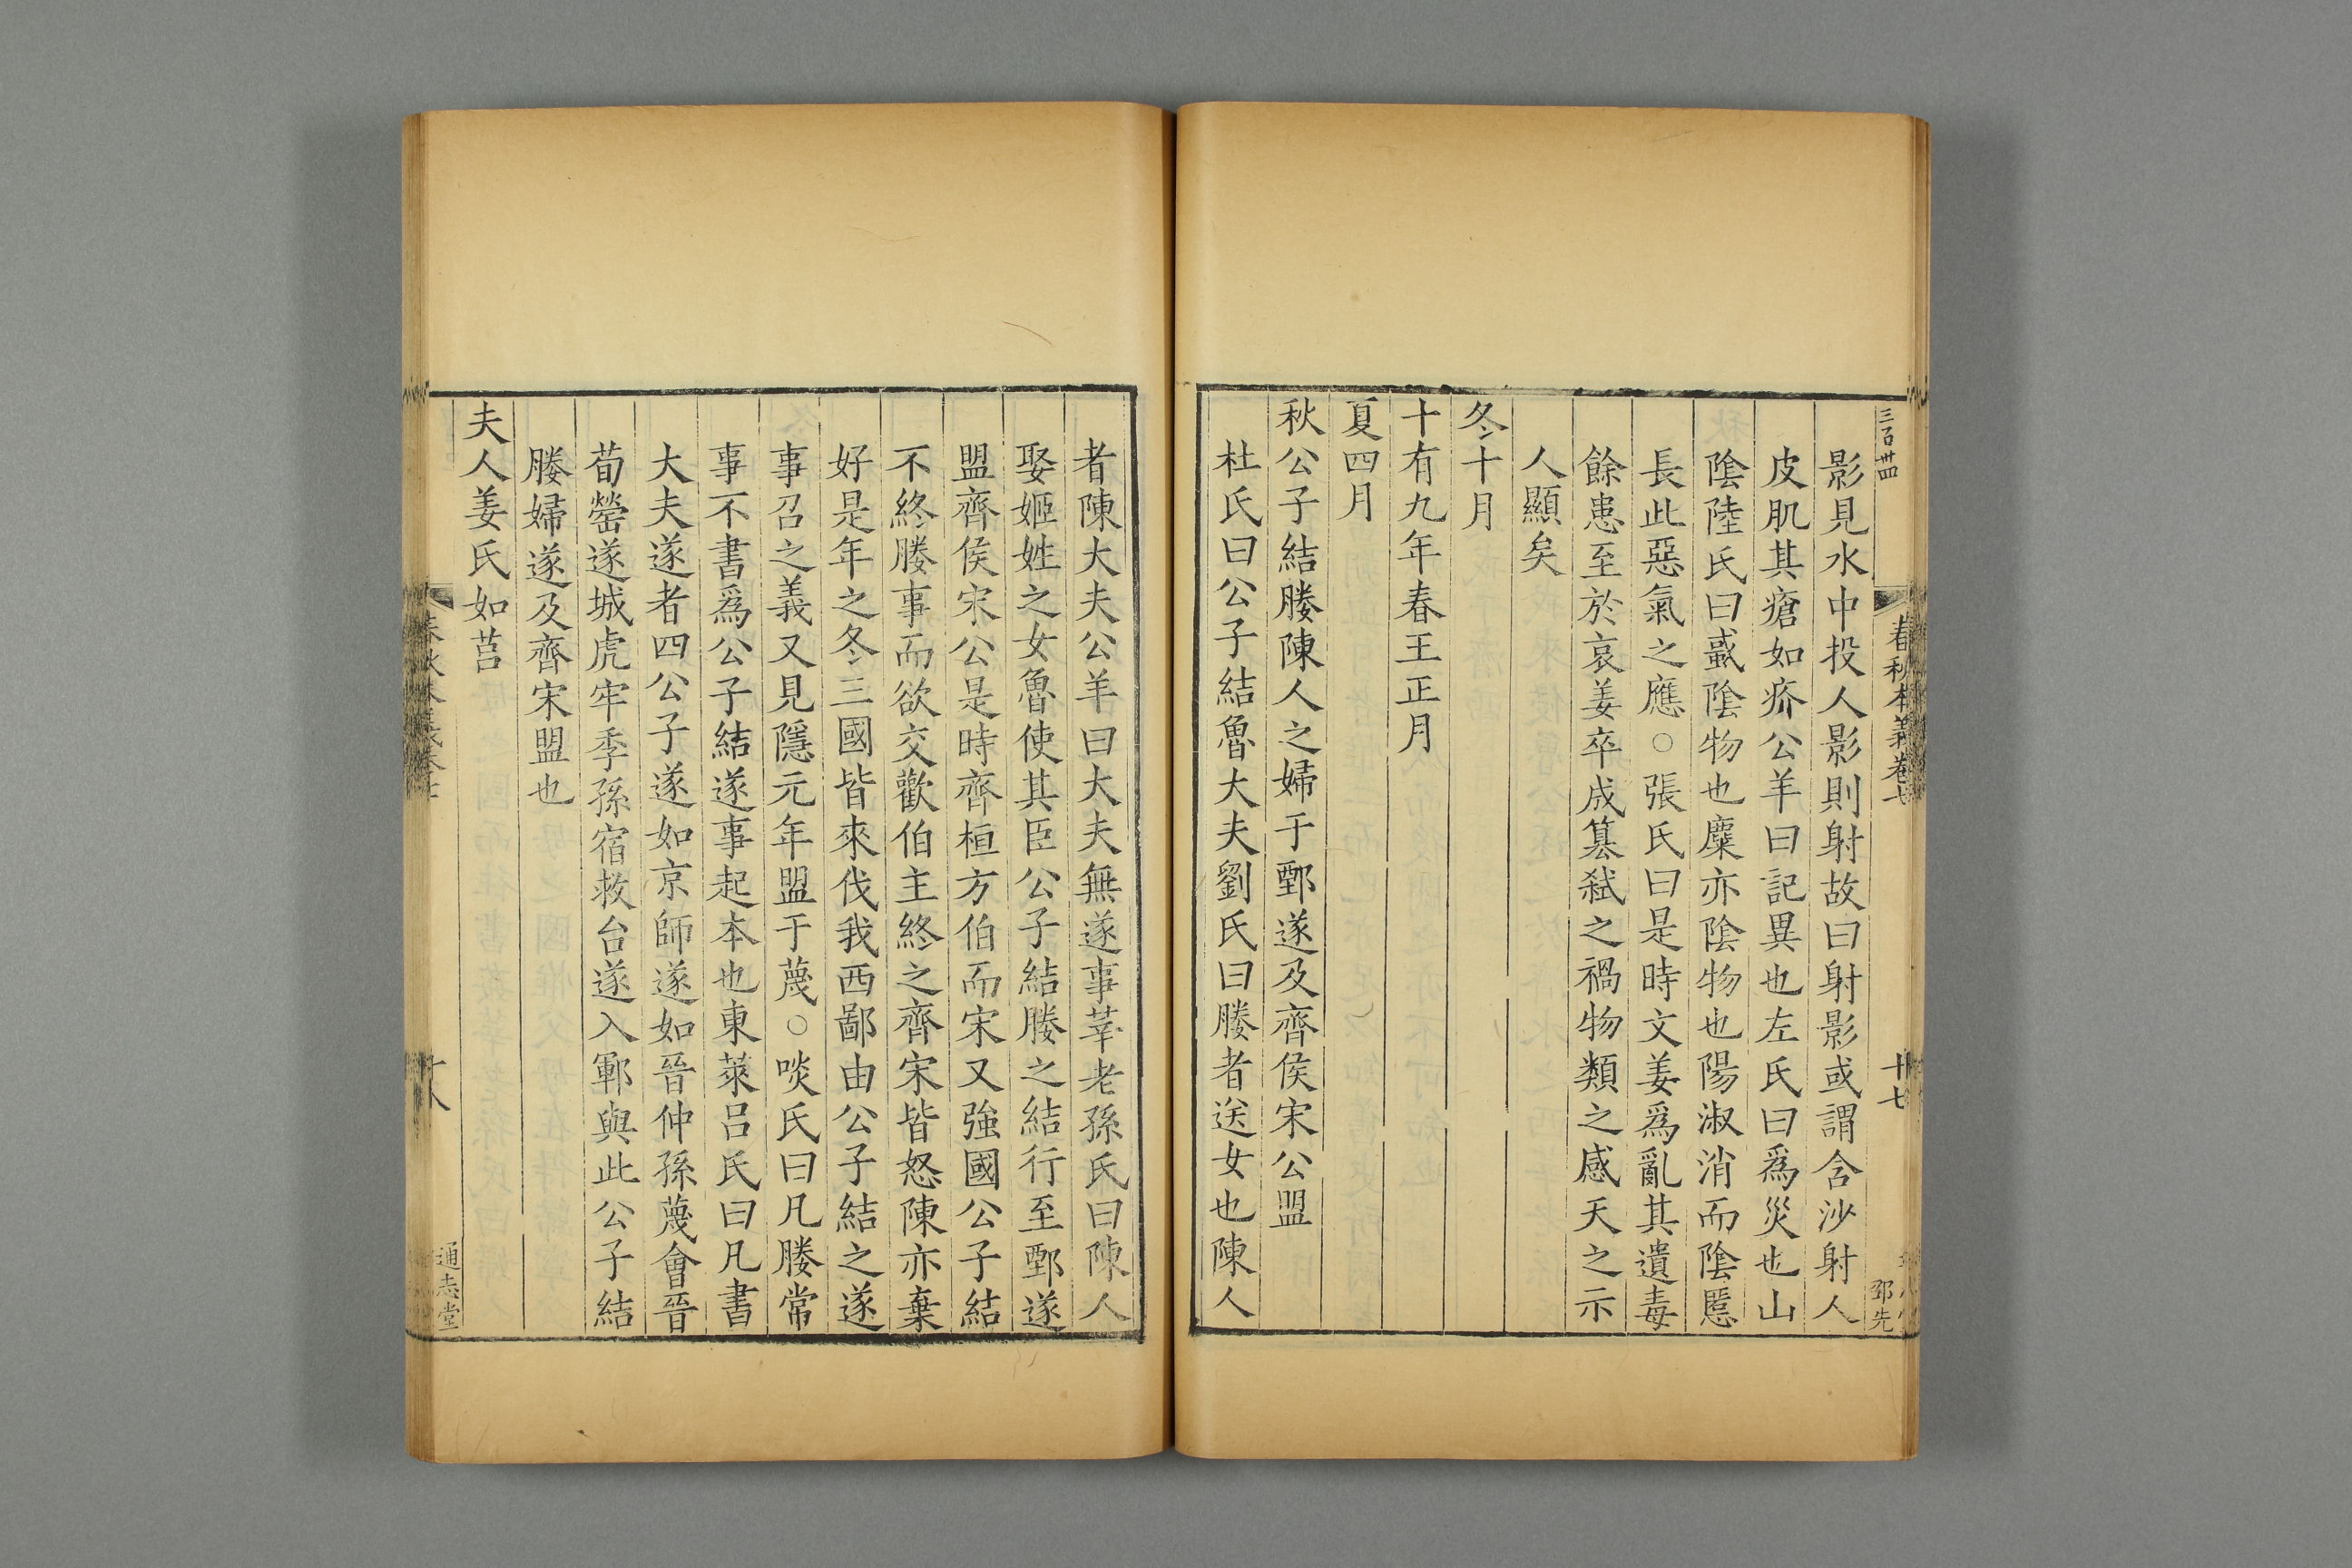 三百廿四
春秋本義卷七
十七
邵先
影見水中投人影則射故曰射影或謂含沙射人
皮肌其瘡如疥公羊曰記異也左氏曰爲災也山
陰陸氏曰蜮陰物也麋亦陰物也陽淑消而陰慝
長此惡氣之應○張氏曰是時文姜爲亂其遺毒
餘患至於哀姜卒成簒弑之禍物類之感天之示
人顯矣
冬十月
十有九年春王正月
夏四月
秋公子結媵陳人之婦于鄄遂及齊侯宋公盟
杜氏曰公子結魯大夫劉氏曰媵者送女也陳人
者陳大夫公羊曰大夫無遂事莘老孫氏曰陳人
娶姬姓之女魯使其臣公子結媵之結行至鄄遂
盟齊侯宋公是時齊桓方伯而宋又強國公子結
不終媵事而欲交歡伯主終之齊宋皆怒陳亦棄
好是年之冬三國皆來伐我西鄙由公子結之遂
事召之義又見隱元年盟于蔑○啖氏曰凡媵常
事不書爲公子結遂事起本也東萊呂氏曰凡書
大夫遂者四公子遂如京師遂如晉仲孫蔑會晉
荀罃遂城虎牢季孫宿救台遂入鄆與此公子結
媵婦遂及齊宋盟也
夫人姜氏如莒
十八
通志堂